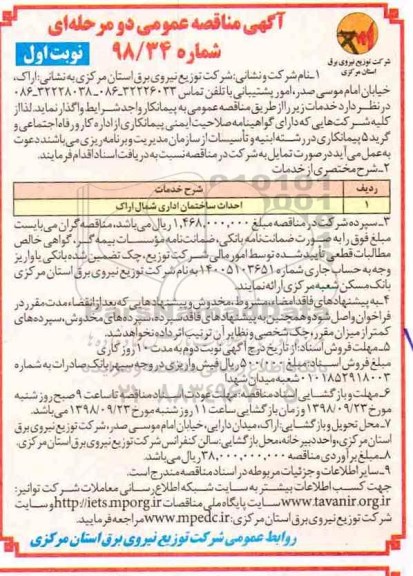 آگهی مناقصه عمومی دو مرحله‌ای
شماره ۹۸/۳۴
نوبت اول
شرکت توزیع نیروی برق
استان مرکزی
۱_نام شرکت و نشانی: شرکت توزیع نیروی برق استان مرکزی به نشانی: اراک،
خیابان امام موسی صدر، امور پشتیبانی با تلفن تماس ۳۲۲۲۶۰۳۳-۰۸۶ـ ۳۲۲۲۸۰۳۸-۰۸۶
در نظر دارد خدمات زیر را از طریق مناقصه عمومی به پیمانکار واجد شرایط واگذار نماید. لذا از
کلیه شرکت‌هایی که دارای گواهینامه صلاحیت ایمنی پیمانکاری از اداره کار و رفاه اجتماعی و
گرید ۵ پیمانکاری در رشته ابنیه و تأسیسات از سازمان مدیریت و برنامه‌ریزی می‌باشند دعوت
به عمل می‌آید در صورت تمایل به شرکت در مناقصه نسبت به دریافت اسناد اقدام فرمایند.
۲_شرح مختصری از خدمات
ردیف شرح خدمات
۱ احداث ساختمان اداری شمال اراک
۳_سپرده شرکت در مناقصه مبلغ ۱,۴۶۸,۰۰۰,۰۰۰ ریال می‌باشد، مناقصه‌گران می‌بایست
مبلغ فوق را به صورت ضمانت‌نامه بانکی، ضمانت‌نامه مؤسسات بیمه‌گر، گواهی خالص
مطالبات قطعی تأیید شده توسط امور مالی شرکت توزیع، چک تضمین شده بانکی یا واریز
وجه به حساب جاری شماره ۱۴۰۰۵۱۰۳۶۵۱ به نام شرکت توزیع نیروی برق استان مرکزی
بانک مسکن شعبه مرکزی ارائه نمایند.
۴_به پیشنهادهای فاقد امضاء، مشروط، مخدوش و پیشنهادهایی که بعد از انقضاء مدت مقرر در
فراخوان واصل شود و همچنین به پیشنهادهای فاقد سپرده، سپرده‌های مخدوش، سپرده‌های
کمتر از میزان مقرر، چک شخصی و نظایر آن ترتیب اثر داده نخواهد شد.
۵_مهلت فروش اسناد: از تاریخ درج آگهی نوبت دوم به مدت ۱۰ روز کاری
مبلغ فروش اسناد: مبلغ ۵۱۰,۰۰۰ ریال فیش واریزی در وجه سپهر بانک صادرات به شماره
۰۱۰۱۸۵۲۹۱۸۰۰۳ شعبه میدان شهدا
۶_مهلت و بازگشایی اسناد مناقصه: مهلت عودت اسناد مناقصه تا ساعت ۹ صبح روز شنبه
مورخ ۱۳۹۸/۰۹/۲۳ و زمان بازگشایی ساعت ۱۱ روز شنبه مورخ ۱۳۹۸/۰۹/۲۳ می‌باشد.
۷_محل تحویل و بازگشایی: اراک، میدان دارایی، خیابان امام موسی صدر، شرکت توزیع نیروی برق
استان مرکزی، واحد دبیرخانه، محل بازگشایی: سالن کنفرانس شرکت توزیع نیروی برق استان مرکزی.
۸_مبلغ برآوردی مناقصه ۳۸,۰۰۰,۰۰۰,۰۰۰ ریال می‌باشد.
۹_سایر اطلاعات و جزئیات مربوطه در اسناد مناقصه مندرج است.
جهت کسب اطلاعات بیشتر به سایت شبکه اطلاع‌رسانی معاملات شرکت توانیر:
www.tavanir.org.ir سایت پایگاه ملی مناقصات http://iets.mporg.ir و سایت
شرکت توزیع نیروی برق استان مرکزی: www.mpedc.ir مراجعه فرمایید.
روابط عمومی شرکت توزیع نیروی برق استان مرکزی